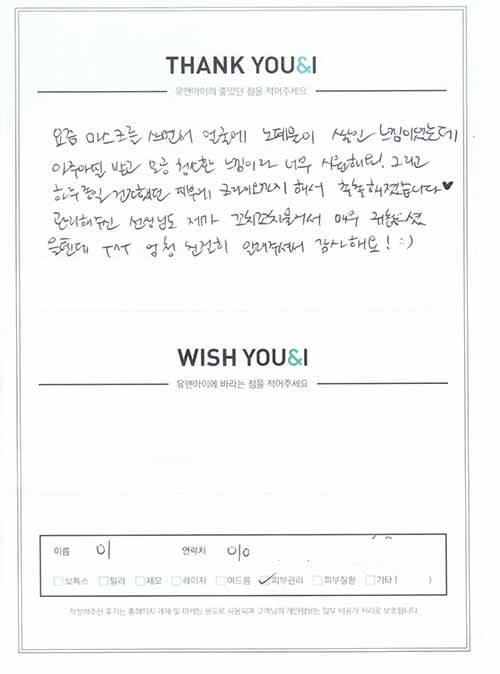 THANK YOU&I
유앤아이의 좋았던 점을 적어주세요
요즘 마스크를 쓰면서 얼굴에 노폐물이 쌓인 느낌이었는데
받고 모공 청소한 느낌이라 너무 시원해요! 그리고
하루종일 건조했던 피부에 크라이오까지 해서 촉촉해졌습니다♥
관리해주신 선생님도 제가 꼬치꼬치물어서 매우 귀찮으셨
을텐데 ㅜㅅㅜ 엄청 친절히 알려주셔서 감사해요! :)
WISH YOU&I
유앤아이에 바라는 점을 적어주세요
이름 이 연락처 010
보톡스 필러 제모 레이저 여드름 ✓피부관리 피부질환 기타 ( )
작성해주신 후기는 홈페이지 게재 및 마케팅 용도로 사용되며 고객님의 개인정보는 일부 비공개 처리로 보호됩니다.